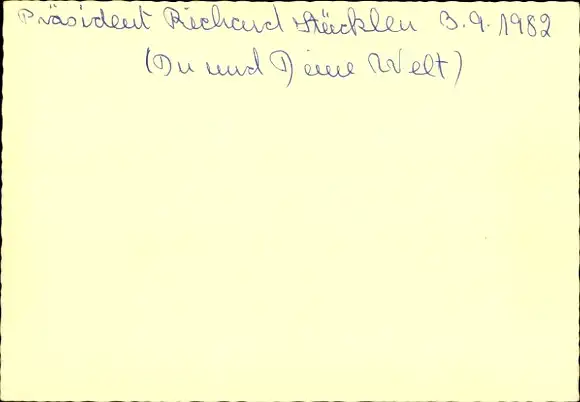 Präsident Richard Stücklen 3.9.1982
(Du und Deine Welt)